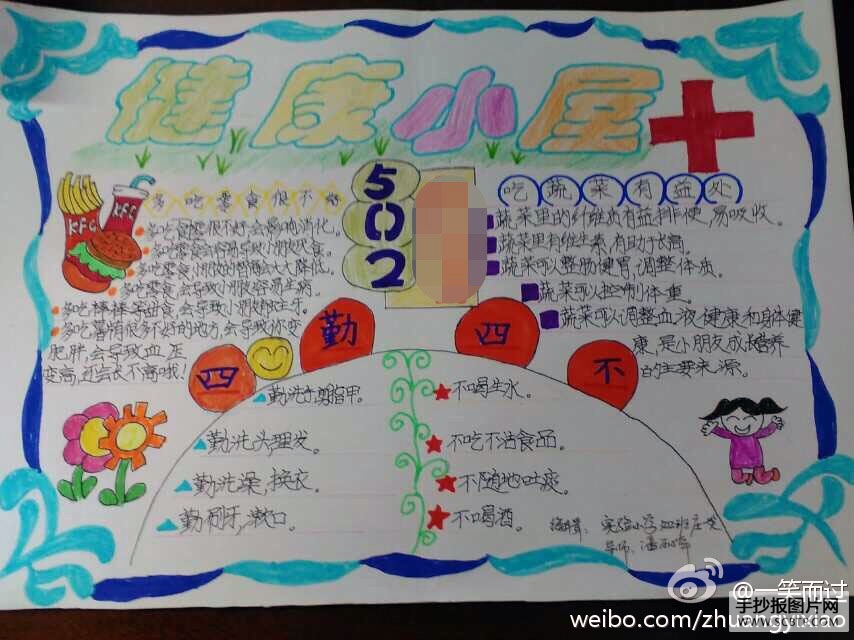 健康小屋
多吃零食很不好
KFC
KFC
502
吃蔬菜有益处
多吃零食很不好,会影响消化。
多吃零食会容易导致小朋友厌食。
多吃零食小朋友的智商会大大降低。
多吃零食,会导致小朋友容易生病。
多吃棒棒等甜食,会导致小朋友蛀牙。
多吃薯
有很多不好的地方,会导致你变
肥胖,会导致血压
变高,还会长不高哦!
蔬菜里的纤维质有益排便,易吸收。
蔬菜里有维生素,有助于长高。
蔬菜可以整肠健胃,调整体质。
蔬菜可以控制体重。
蔬菜可以调整血液健康和身体健
康,是小朋友成长营养
的主要来源。
四勤四不
勤洗手剪指甲。
勤洗头,理发。
勤洗澡,换衣。
勤刷牙,漱口。
不喝生水。
不吃不洁食品。
不随地吐痰。
不喝酒。
实验小学502班庄
导师:潘
@一笑而过
weibo.com/zhuangyixiao
手抄报图片网
www.SCBTP.COM